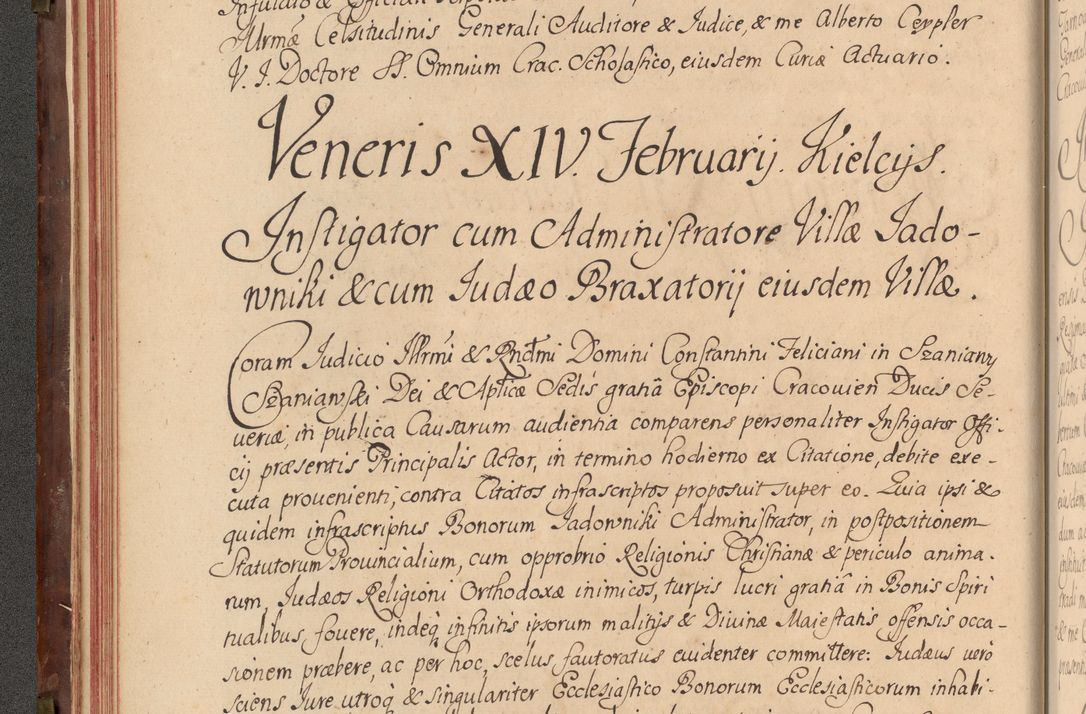 Infulato & Officiali
Illrmæ Celsitudinis Generali Auditore & Iudice, & me Alberto Ceypler
V. I. Doctore SS. Omnium Crac. Scholastico, eiusdem Curiæ Actuario.
Veneris XIV. Februarij. Kielcijs.
Instigator cum Administratore Villæ Iado-
wniki & cum Iudæo Braxatorij eiusdem Villæ.
Coram Iudicio Illrmi & Rndmi Domini Constantini Feliciani in Szaniawy
Szaniawski Dei & Aplicæ Sedis gratiâ Episcopi Cracovien Ducis Se-
veriæ, in publica Causarum audientia comparens personaliter Instigator Offi-
cij præsentis Principalis Actor, in termino hodierno ex Citatione, debite exe-
cuta provenienti, contra Citatos infrascriptos proposuit super eo. Quia ipsi &
quidem infrascriptus Bonorum Iadowniki Administrator, in postpositionem
Statutorum Provincialium, cum opprobrio Religionis Christianæ & periculo anima-
rum, Iudæos Religioni Orthodoxæ inimicos, turpis lucri gratiâ in Bonis Spiri
tualibus, fovere, indeq infinitis ipsorum malitijs & Divinæ Maiestatis offensis occa-
sionem præbere, ac per hoc, scelus fautoratus evidenter committere: Iudæus vero
sciens Iure utroq & singulariter Ecclesiastico Bonorum Ecclesiasticorum inhabi-